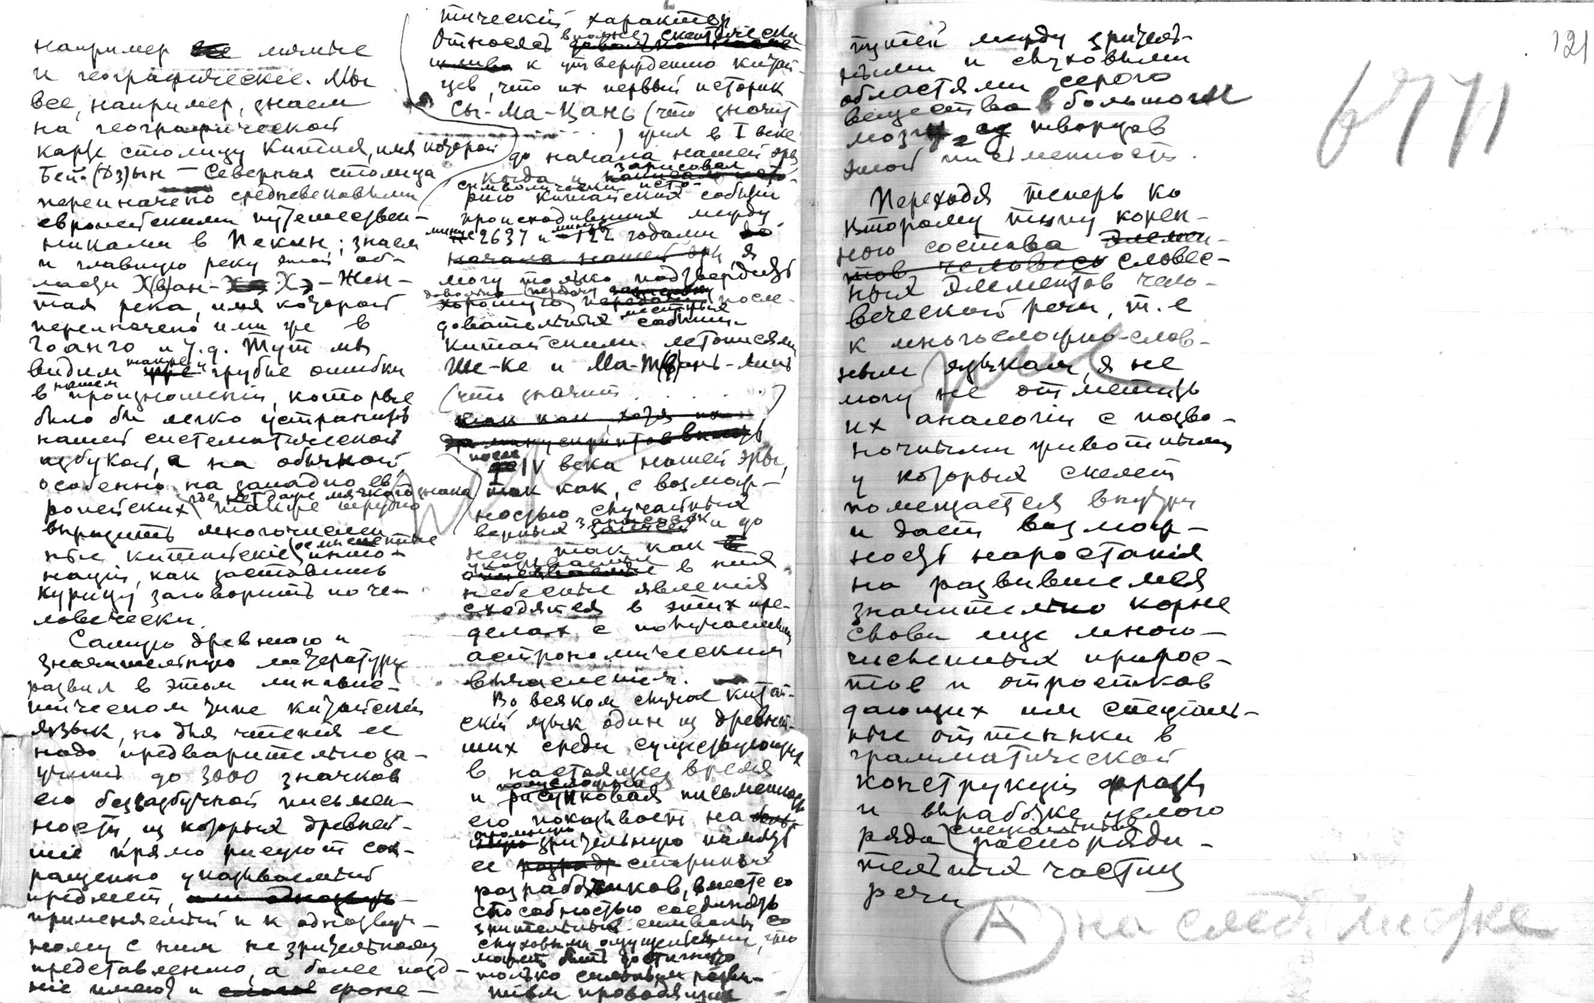 например личные
и географическіе. Мы
все, например, знаем
на географической
карте столицу Китая, имя которой
Бей-(Дз)ын — Северная столица
переиначено средневековыми
европейскими путешествен-
никами в Пекин; знаем
и главную реку этой об-
ласти Х(в)ан-Хэ — Жел-
тая река, имя которой
переиначено ими же в
Гоанго и т.д. Тут мы
видим также грубые ошибки
в нашем произношеніи, которые
было бы легко устранить
нашей систематической
азбукой, а на обычной,
особенно на западно ев-
ропейских (где нет даже мягкого знака) также трудно
выразить многочислен-
ные китайскіе
націи, как заставить
курицу заговорить по че-
ловечески.
Самую древнюю и
значительную литературу
развил в этом лингвис-
тическом типе китайскій
язык, но для чтения ее
надо предварительно за-
учить до 3000 значков
его безазбучной письмен-
ности, из которых древней-
шіе прямо рисуют сок-
ращенно указываемый
предмет,
применяемый и к однозвуч-
ному с ним не зрительному
представлению, а более позд-
ніе имеют и фоне-
тическій характер
Относясь вполне скептически
к утверждению китай-
цев, что их первый историк
Сы-Ма-Цань (что значит
. . . . ) жил в I веке
до начала нашей эры,
когда и зарисовал
символически исто-
рию китайских событий
происходивших между
минус 2637 и минус 122 годами
я
могу только подтвердить
довольно хорошую передачу после-
довательных местных событий
китайскими летописями
Ше-ке и Ма-Т(в)ань-Линь
(что значит . . . . . . )
после IV века нашей эры,
так как, с возмож-
ностью случайных
верных записей и до
него так как
указываемые в них
небесные явления
сходятся в этих пре-
делах с получаемыми
астрономическими
вычисления.
Во всяком случае китай-
скій язык один из древней-
ших среди существующих
в настоящее время
и рисунковая письменность
его показывает на
огромную зрительную память
ее старинных
разработчиков, вместе со
способностью соединять
зрительные символы со
слуховыми ощущениями, что
может быть достигнуто
только сильным разви-
тием проводящих
путей между зритель-
ными и слуховыми
областями серого
вещества в большом
мозгу у творцов
этой письменности.
Переходя теперь ко
второму типу корен-
ного состава словес-
ных элементов чело-
веческой речи, т.е
к многосложно-слов-
ным языкам, я не
могу не отметить
их аналогіи с позво-
ночными животными
у которых скелет
помещается внутри
и дает возмож-
ность наростанія
на развившемся
значительно корне
слова еще много-
численных прирос-
тов и отростков
дающих им спеціаль-
ные оттенки в
грамматической
конструкціи фразы
и выработке целого
ряда специальных распоряди-
тельных частиц
речи
А на след. листке
121